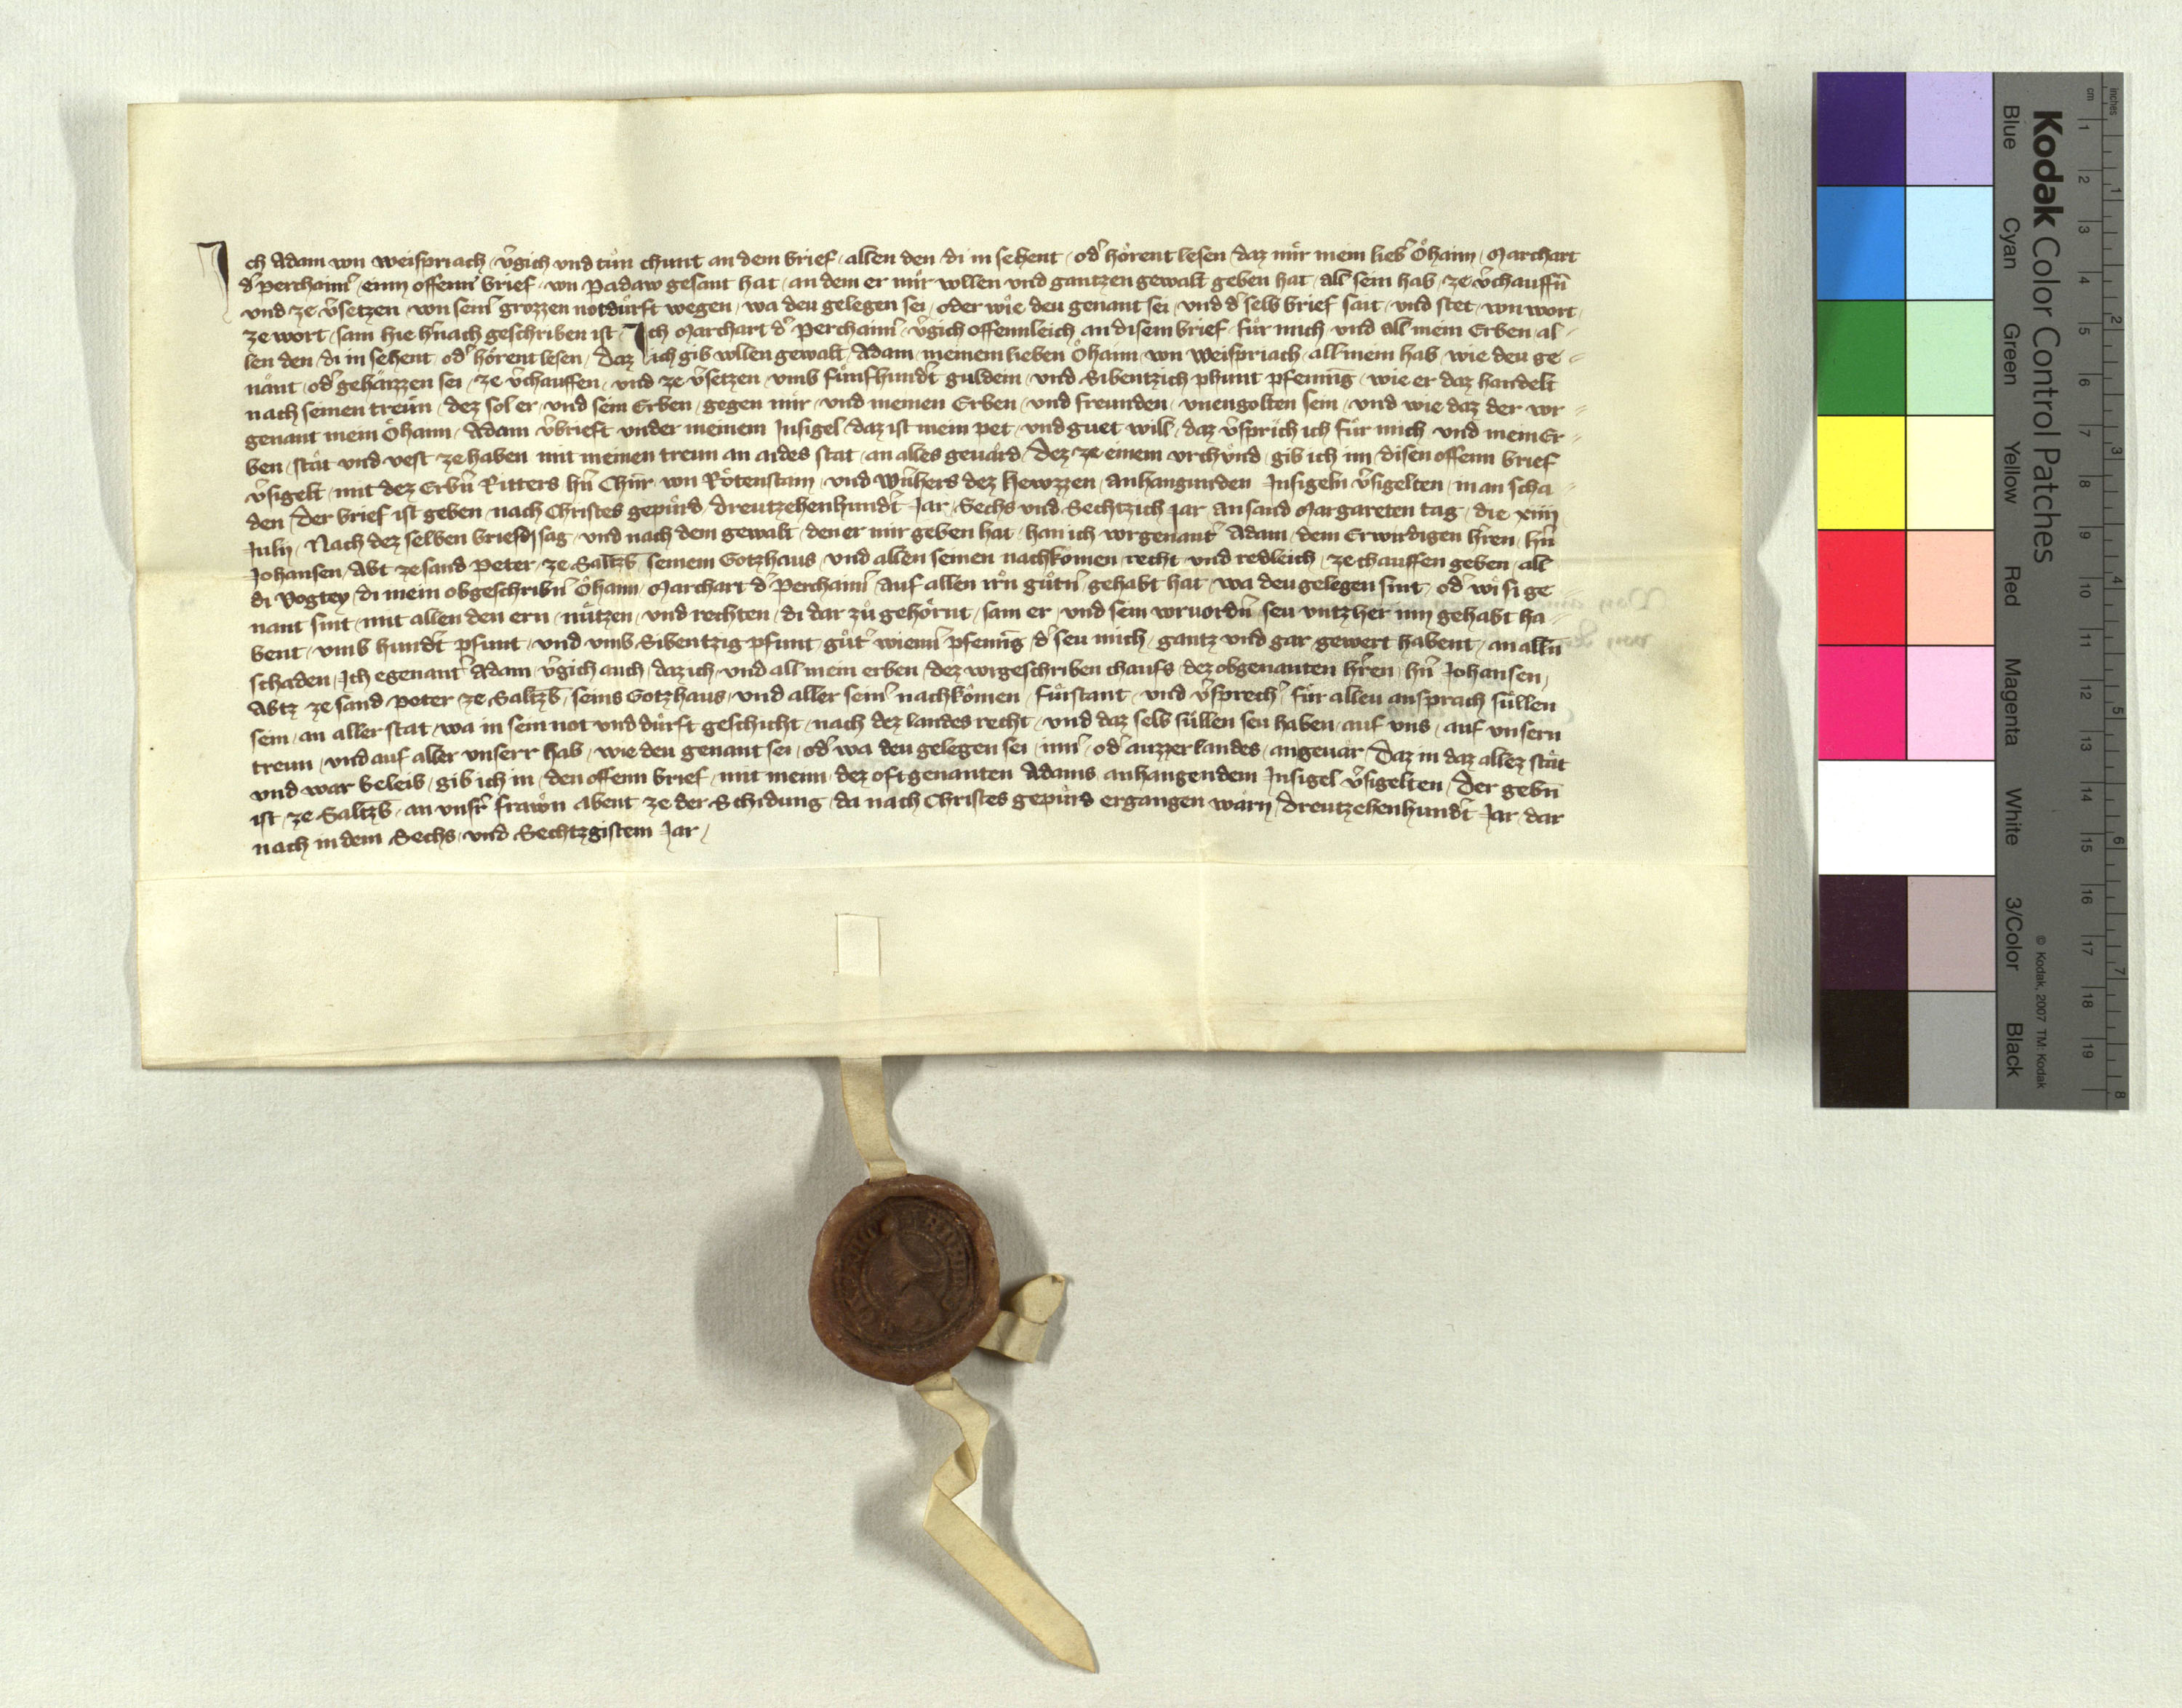 Ich Adam von Weispriach / v̉gich vnd tůn chunt an dem brief / allen den / di in sehent / od̉ hoͤrent lesen / daz mir mein lieb̉ Oͤhaim / Marchart
d̉ Perchaim̉ / einn offenn brief / von Padaw gesant hat / an dem er mir vollen vnd gantzen gewalt geben hat / all sein hab / ze v̉chauffn̄
vnd ze v̉setzen / von sein̉ grozzen notdurft wegen / wa deu gelegen sei / oder wie deu genant sei / vnd d̉ selb brief sait / vnd stet / von wort /
ze wort / sam hie h̉nach geschriben ist / Ich Marchart d̉ Perchaim̉ / v̉gich offennleich an disem brief / fuͤr mich / vnd all mein Erben / al=
len den / di in sehent / od̉ hoͤrent lesen / Daz ich gib vollen gewalt / Adam / meinem lieben Oͤhaim / von Weispriach / all mein hab / wie deu ge=
nant / od̉ gehaizzen sei / ze v̉chauffen / vnd ze v̉setzen / vmb fuͤnfhund̉t guldein / vnd Sibentzich phunt pfening / wie er daz handelt
nach seinen treun / dez sol er / vnd sein Erben / gegen mir / vnd meinen Erben / vnd freunden / vnengolten sein / vnd wie daz der vor=
genant mein Oͤhaim / Adam v̉brieft vnder meinem Insigel / daz ist mein pet / vnd guet will / daz v̉sprich ich fuͤr mich / vnd mein Er=
ben / staͤt vnd vest ze haben mit meinen treun an aides stat / an alles geuaͤrd / Dez ze einem vrchuͤnd / gib ich im / disen offenn brief
v̉sigelt / mit dez Erb̉n Ritters h̉n Chuͤr / von Roͤtenstain / vnd Wuͤlhers dez Hewzzen / anhangunden Insigeln v̉sigelten / in an scha=
den / Der brief ist geben / nach Christes gepuͤrd / dreutzehenhund̉t Jar / Sechs vnd Sechtzich Jar an sand Margareten tag / die xiiij
Julij / Nach dez selben briefs sag / vnd nach dem gewalt / den er mir geben hat / han ich vorgenant̉ Adam / dem Erwirdigen h̉ren / h̉n
Johansen / Abt ze sand Peter / ze Saltzb̉ / seinem Gotzhaus / vnd allen seinen nachkomen / recht vnd redleich / ze chauffen geben / all
di Vogtey / di mein obgeschribn̄ Oͤhaim / Marchart d̉ Perchaim̉ / auf allen irn guͤtn̄ / gehabt hat / wa deu gelegen sint / od̉ wi si ge
nant sint / mit allen den ern / nuͤtzen / vnd rechten / di dar zů gehoͤrnt / sam er / vnd sein voruordn̄ / seu vntz her inn gehabt ha=
bent / vmb hund̉t pfunt / vnd vmb Sibentzig pfunt / gůt̉ wienn̉ pfening / d̉ seu mich / gantz vnd gar / gewert habent / an alln̄
schaden / Ich egenant̉ Adam / v̉gich auch / daz ich / vnd all mein erben / dez vorgeschriben chaufs / dez obgenanten h̉ren / h̉n Johansen /
Abtz ze sand Peter / ze Saltzb̉ / seins Gotzhaus / vnd aller sein̉ nachkoͤmen / Fuͤrstant / vnd v̉sprech̉ / fuͤr alleu ansprach suͤllen
sein / an aller stat / wa in sein not vnd duͤrft geschicht / nach dez landes recht / vnd daz selb suͤllen seu haben / auf vns / auf vnsern
treun / vnd auf aller vnserr hab / wie deu genant sei / od̉ wa deu gelegen sei / inn̉ / od̉ auzzer landes / an geuaͤr / Daz in daz allez staͤt
vnd war beleib / gib ich in / den offenn brief / mit meim / dez oftgenanten Adams / anhangendem Insigel v̉sigelten / Der gebn̄
ist / ze Saltzb̉ / an vnsr̉ frawͤn abent ze der Schidung / da nach Christes gepuͤrd ergangen warn / dreutzehenhund̉t Jar / dar
nach in dem Sechs / vnd Sechtzgistem Jar /
Kodak Color Control Patches
Blue Cyan Green Yellow Red Magenta White 3/Color Black
© Kodak, 2007 TM: Kodak
inches 1 2 3 4 5 6 7 8
cm 1 2 3 4 5 6 7 8 9 10 11 12 13 14 15 16 17 18 19